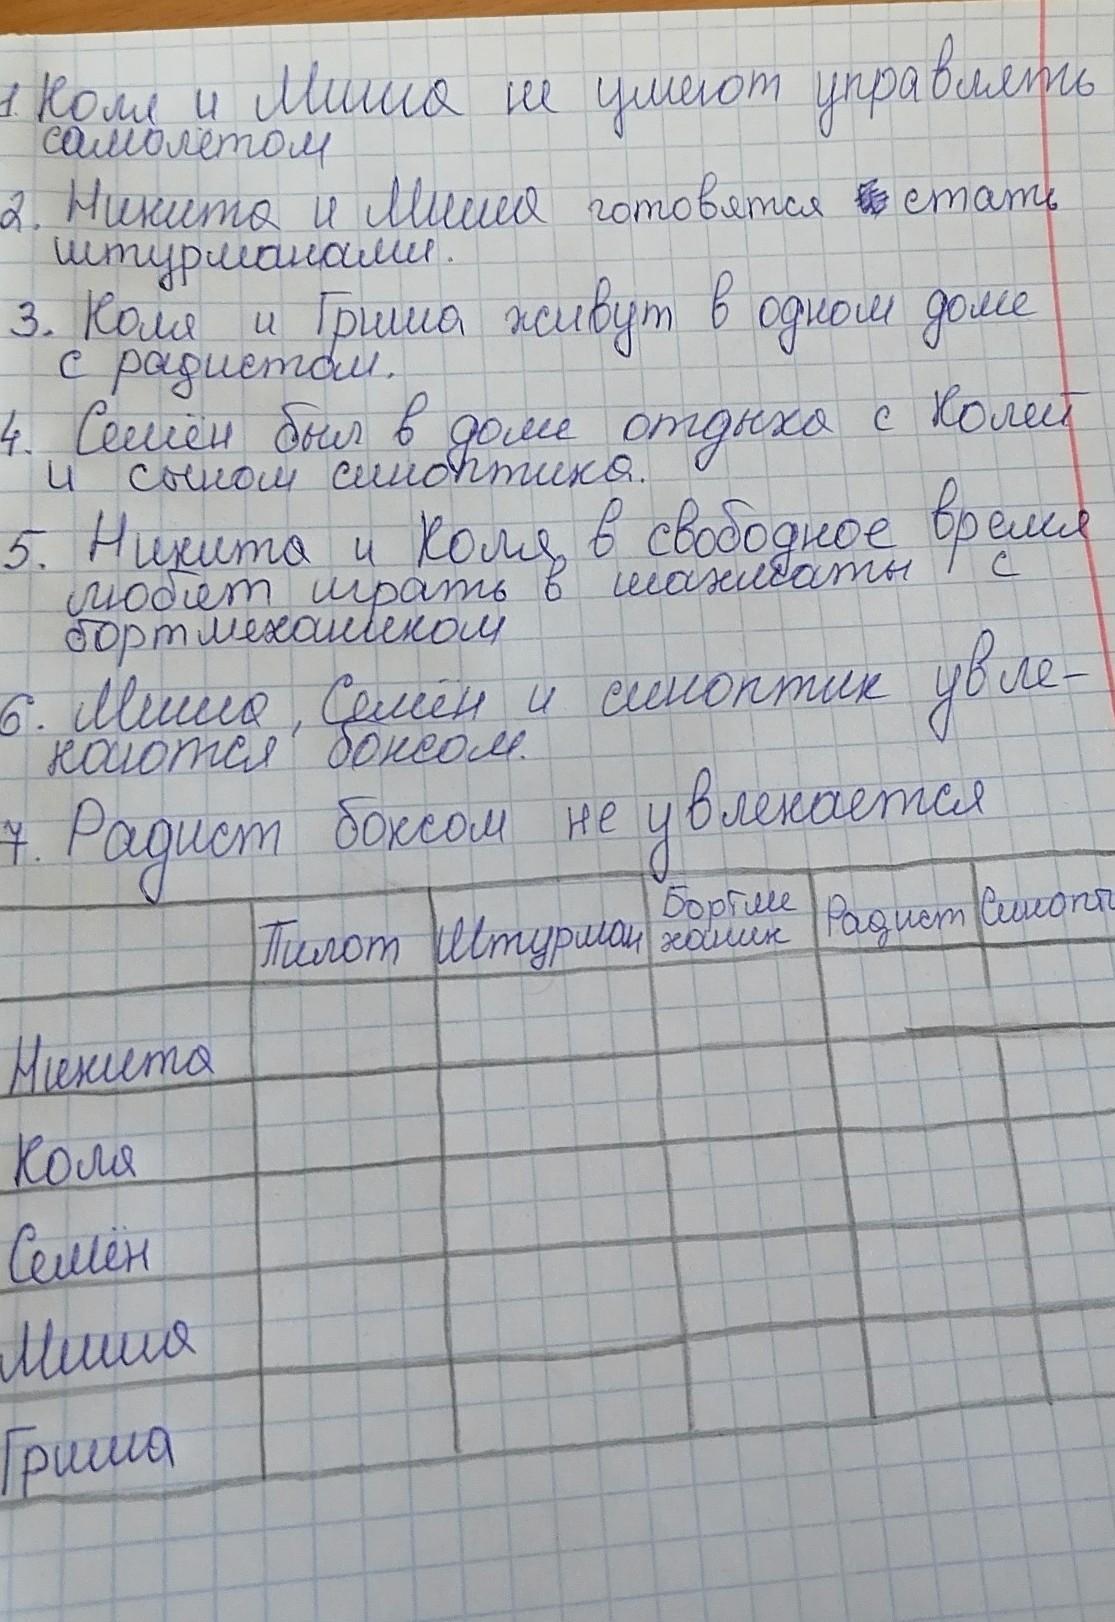 1. Коля и Миша не умеют управлять
самолётом
2. Никита и Миша готовятся стать
штурманами.
3. Коля и Гриша живут в одном доме
с радистом.
4. Семён был в доме отдыха с Колей
и сыном синоптика.
5. Никита и Коля в свободное время
любят играть в шахматы с
бортмехаником
6. Миша, Семён и синоптик увле-
каются боксом.
7. Радист боксом не увлекается
Пилот Штурман Бортме Радист Синопт
ханик
Никита
Коля
Семён
Миша
Гриша